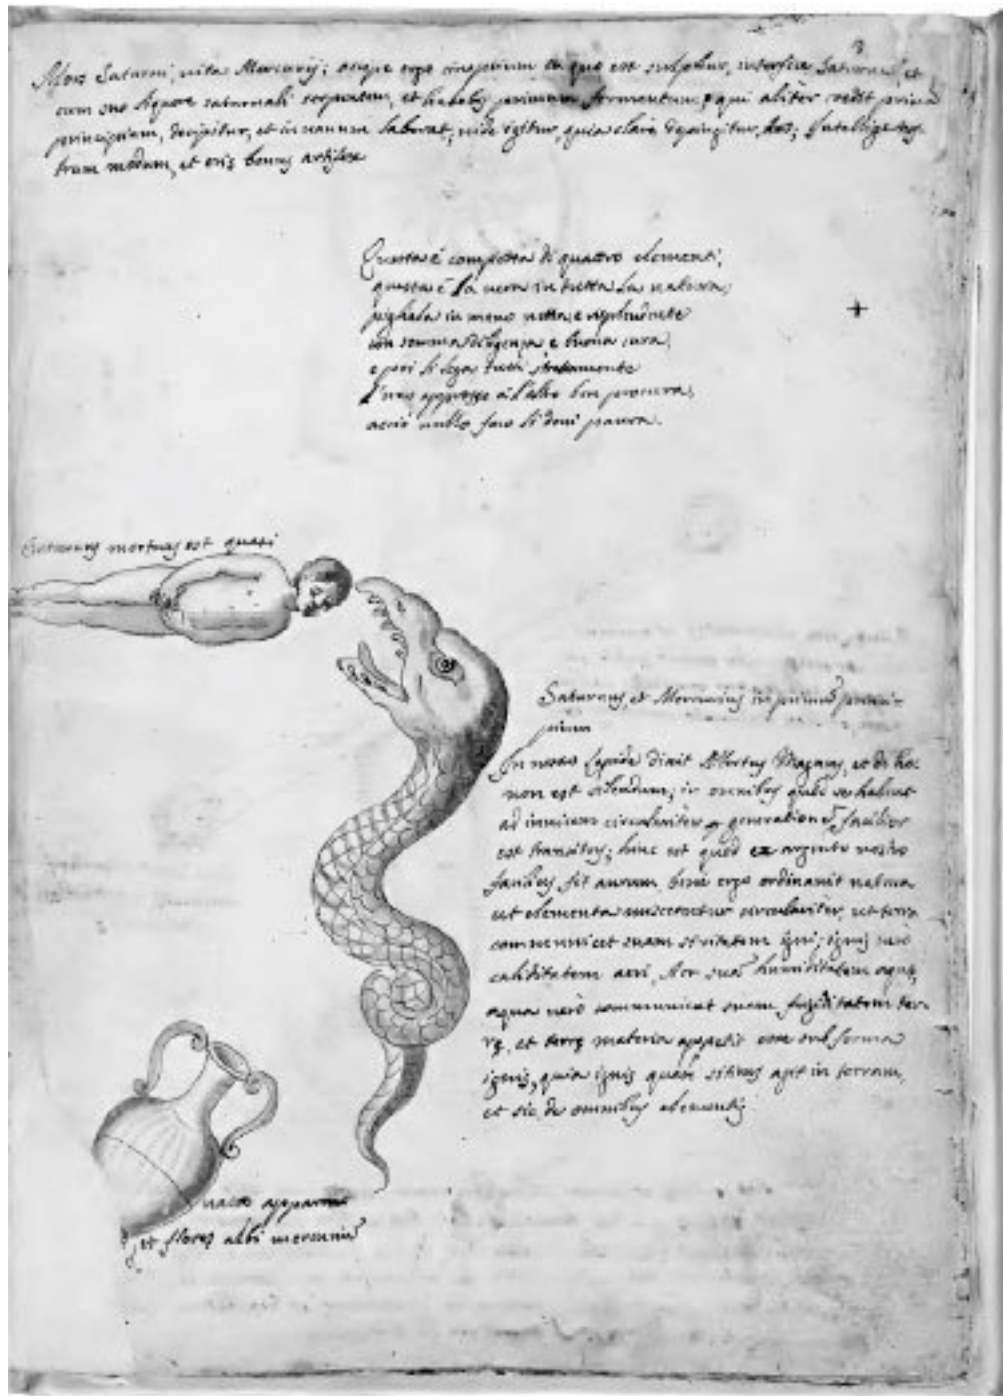 Mors Saturni, vita Mercurij; accipe ergo principium in quo est sulphur, interfice Saturnum, et
cum suo liquore saturnali serpentem, et habebis primum fermentum, qui aliter credit prima
principium, decipitur, et in vanum laborat; vide igitur, quia clare depingitur, intellige nos-
trum modum, et eris bonus artifex
Questa è composta di quattro elementi,
questa è la vera in tutta la natura,
pigliala in mano netta, e
con somma diligenza, e buona cura,
e poi li lega tutti strettamente
l'uno appresso à l'altro ben procura,
acciò nullo foco li doni paura.
Saturnus mortuus est quasi
Saturnus, et Mercurius in primum princi-
pium
In nostro lapide dixit Albertus Magnus, et de hoc
non est silendum; in omnibus quae se habent
ad invicem circulariter generatione, facilior
est transitus; hinc est quod ex argento nostro
facilius fit aurum, bene ergo ordinavit natura
ut elementa miscerentur circulariter, ut terra
communicet suam siccitatem igni; ignis verò
caliditatem aeri, Aer suam humiditatem aquae,
aqua verò communicat suam frigiditatem ter-
rę, et terrę materia appetit esse sub forma
ignis, quia ignis quasi sitivus agit in terram,
et sic de omnibus elementis
vacca
et flores albi mercurii